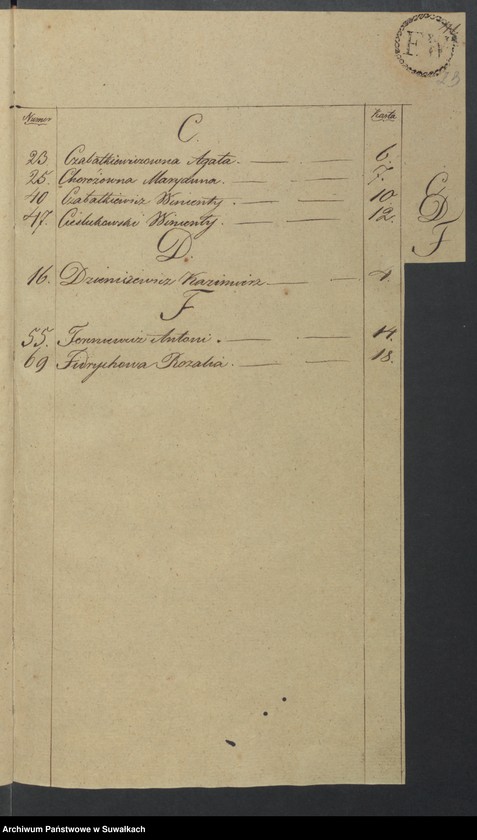 Numer Karta
C.
23 Czabatkiewiczowna Agata. 6.
25. Chorożowna Maryanna. 7.
40 Cabatkiewicz Wincenty 10
47. Cieslukowski Wincenty. 12.
C
D
F
D.
16. Dzieniszewicz Kazimierz. 4.
F
55. Ferniewicz Antoni. 14.
69 Fidrychowa Rozalia. 18.
Archiwum Państwowe w Suwałkach